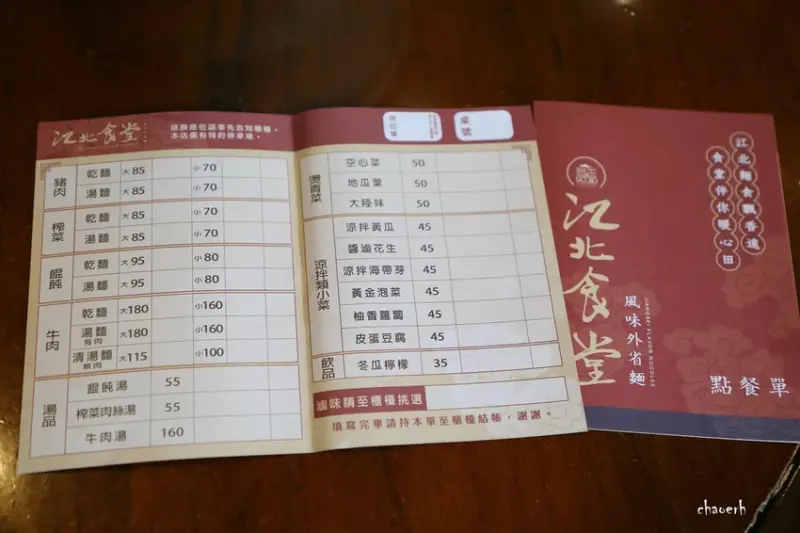 江北食堂
欲換座位請事先告知櫃檯。
本店備有特約停車場。
豬肉
乾麵 大85 小70
湯麵 大85 小70
榨菜
乾麵 大85 小70
湯麵 大85 小70
餛飩
乾麵 大95 小80
湯麵 大95 小80
牛肉
乾麵 大180 小160
湯麵 有肉 大180 小160
清湯麵 無肉 大115 小100
湯品
餛飩湯 55
榨菜肉絲湯 55
牛肉湯 160
桌號
燙青菜
空心菜 50
地瓜葉 50
大陸妹 50
涼拌類小菜
涼拌黃瓜 45
醬滷花生 45
涼拌海帶芽 45
黃金泡菜 45
柚香蘿蔔 45
皮蛋豆腐 45
飲品
冬瓜檸檬 35
滷味請至櫃檯挑選
填寫完畢請持本單至櫃檯結帳，謝謝。
江北麵食飄香遠
食堂伴你暖心田
江北食堂
風味外省麵
JIANGBEI FLAVOR NOODLES
點餐單
chaoerh